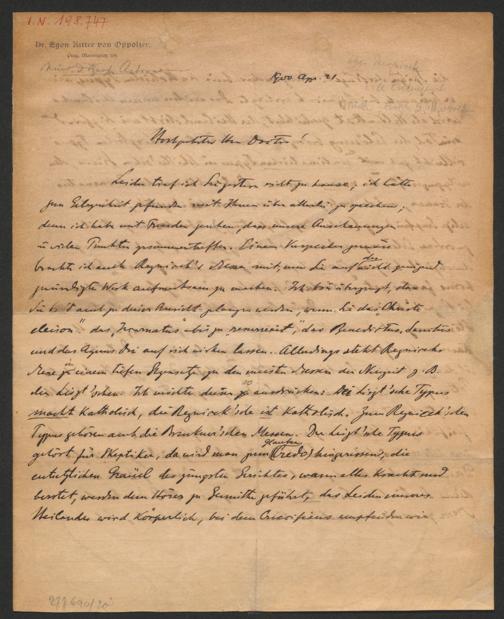 I. N. 198.747
Dr. Egon Ritter von Oppolzer.
1900 Apr. 21
Hochgeehrter Herr Doctor!
Leider traf ich Sie gestern nicht zu Hause; ich hätte
gern Gelegenheit gefunden mit Ihnen über allerlei zu sprechen;
denn ich habe mit Freuden gesehen, dass unsere Anschauungen
in vielen Punkten zusammentreffen. Einem Versprechen gemäss
brachte ich auch Messe mit, um Sie auf das wohl genügend
gewürdigte Werk aufmerksam zu machen. Ich bin überzeugt, dass
Sie auch zu dieser Ansicht gelangen werden, wenn Sie das Christe
eleison", das "Incarnatus" bis zu "resurrexit", das Benedictus, Sanctus
und das Agnus Dei auf sich wirken lassen. Allerdings steht
Messe in einem tiefen Gegensatz zu den meisten Messen der Neuzeit z. B.
der Liszt'schen. Ich möchte diesen so ausdrücken: Der Liszt'sche Typus
macht Katholisch, die ist Katholisch. Zum
Typus gehören auch die Bruckner'schen Messen. Der Liszt'sche Typus
gehört für Skeptiker, da wird man zum Glauben (Credo) hingerissen, die
entsetzlichen Gräuel des jüngsten Gerichtes, wann alles kracht und
berstet, werden dem Hörer zu Gemüthe geführt, das Leiden unseres
Heilandes wird Körperlich, bei dem Crucifixus empfinden wir